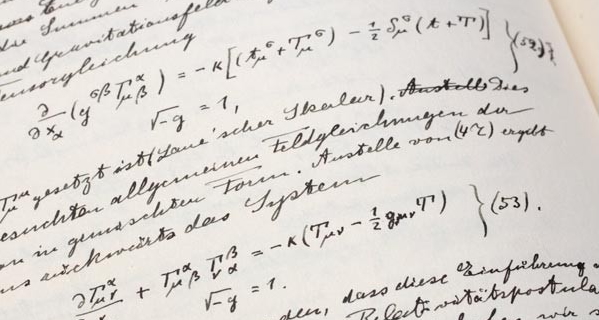 die Summen
und Gravitationsfeld
Tensorgleichung
∂/∂x_α (g^{σβ} Γ^α_{μβ}) = −κ[(t_μ^σ + T_μ^σ) − ½ δ_μ^σ (t + T)] } (52),
√−g = 1,
gesetzt ist (Laue'scher Skalar). Anstelle Dies
gesuchten allgemeinen Feldgleichungen der
in gemischten Form. Anstelle von (47) ergibt
rückwärts das System
∂Γ^α_{μν} + Γ^α_{μβ} Γ^β_{να} = −κ(T_{μν} − ½ g_{μν} T) } (53).
√−g = 1.
dass diese Einführung
Relativitätspostula